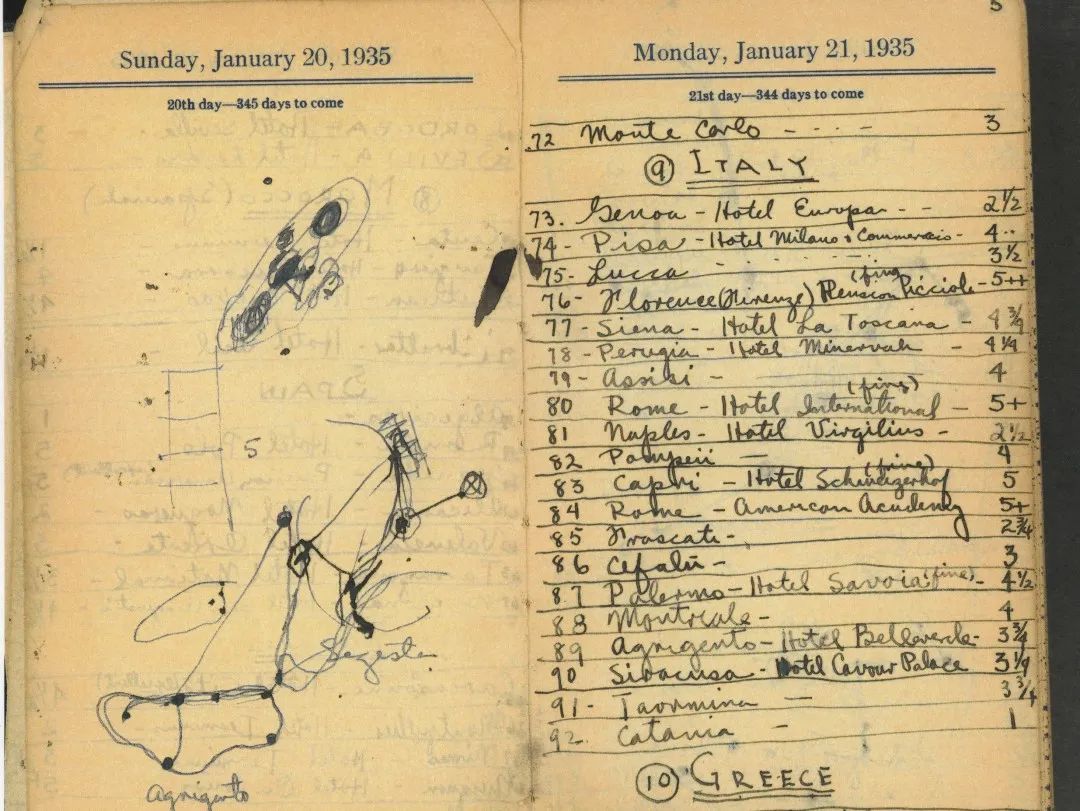 Sunday, January 20, 1935
20th day—345 days to come
5
Segesta
Agrigento
5
Monday, January 21, 1935
21st day—344 days to come
72 Monte Carlo - - - - 3
⑨ ITALY
73. Genoa - Hotel Europa - - 2½
74 - Pisa - Hotel Milano & Commercio - 4 - -
75 - Lucca - - - - - 3½
76 - Florence (Firenze) Pension Picciole - 5++
(fine)
77 - Siena - Hotel La Toscana - 4¾
78 - Perugia - Hotel Minerva - 4¼
79 - Assisi - 4
80 Rome - Hotel International - 5+
(fine)
81 Naples - Hotel Virgilius - 2½
82 Pompeii - 4
83 Capri - Hotel Schweizerhof 5
(fine)
84 Rome - American Academy 5+
85 Frascati - 2¾
86 Cefalù - 3
87 Palermo - Hotel Savoia (fine) - 4½
88 Montreale - 4
89 Agrigento - Hotel Belvedere - 3¾
90 Siracusa - Hotel Cavour Palace 3¼
91 - Taormina - 3¾
92 Catania - 1
⑩ GREECE